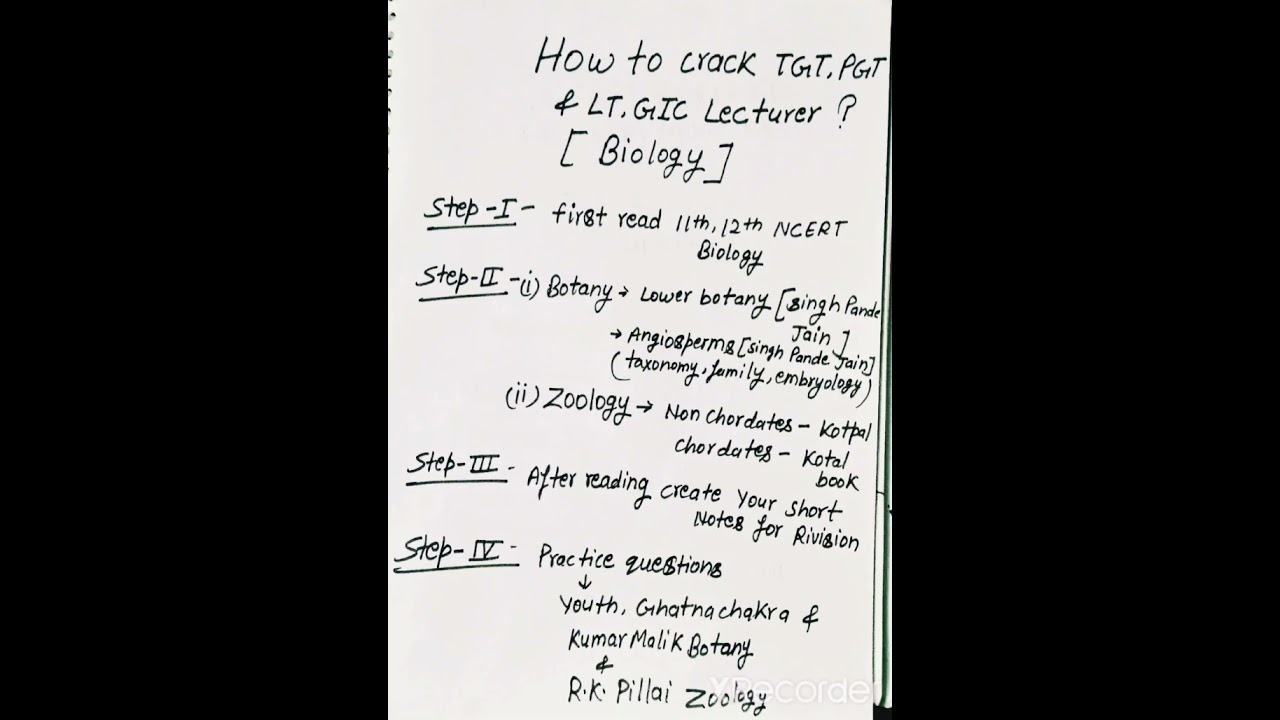 How to crack TGT, PGT
& LT, GIC Lecturer ?
[ Biology ]
Step -I - first read 11th, 12th NCERT
Biology
Step-II - (i) Botany → Lower botany [singh Pande
Jain ]
→ Angiosperms [singh Pande Jain]
( taxonomy, family, embryology )
(ii) Zoology → Non Chordates - Kotpal
Chordates - Kotal
book
Step-III - After reading create Your short
Notes for Rivision
Step-IV - Practice questions
↓
Youth, Ghatnachakra &
Kumar Malik Botany
&
R.K. Pillai Zoology
XRecorder